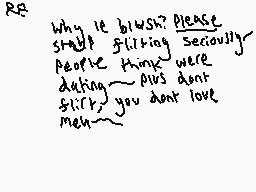 RE
Why le blush? Please
stop flirting seriously~
people think were
dating~ plus dont
flirt, you dont love
meh~